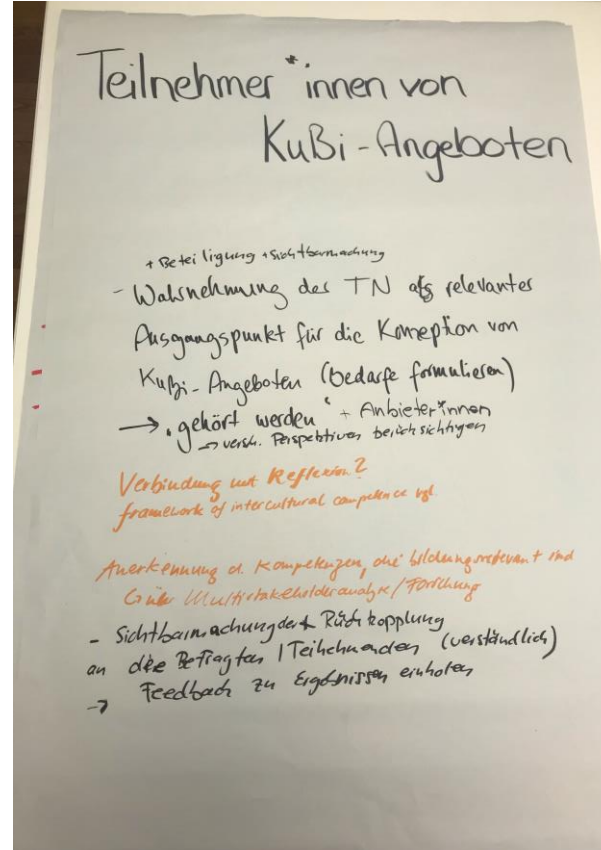 Teilnehmer*innen von
KuBi-Angeboten
+ Beteiligung + Sichtbarmachung
- Wahrnehmung der TN als relevanter
Ausgangspunkt für die Konzeption von
KuBi-Angeboten (bedarfe formulieren)
→ „gehört werden" + Anbieter*innen
→ versch. Perspektiven berücksichtigen
Verbindung mit Reflexion?
framework of intercultural competence vgl.
Anerkennung d. Kompetenzen, die bildungsrelevant sind
über Multistakeholderanalyse / Forschung
- Sichtbarmachung der + Rückkopplung
an die Befragten / Teilnehmenden (verständlich)
→ Feedback zu Ergebnissen einholen